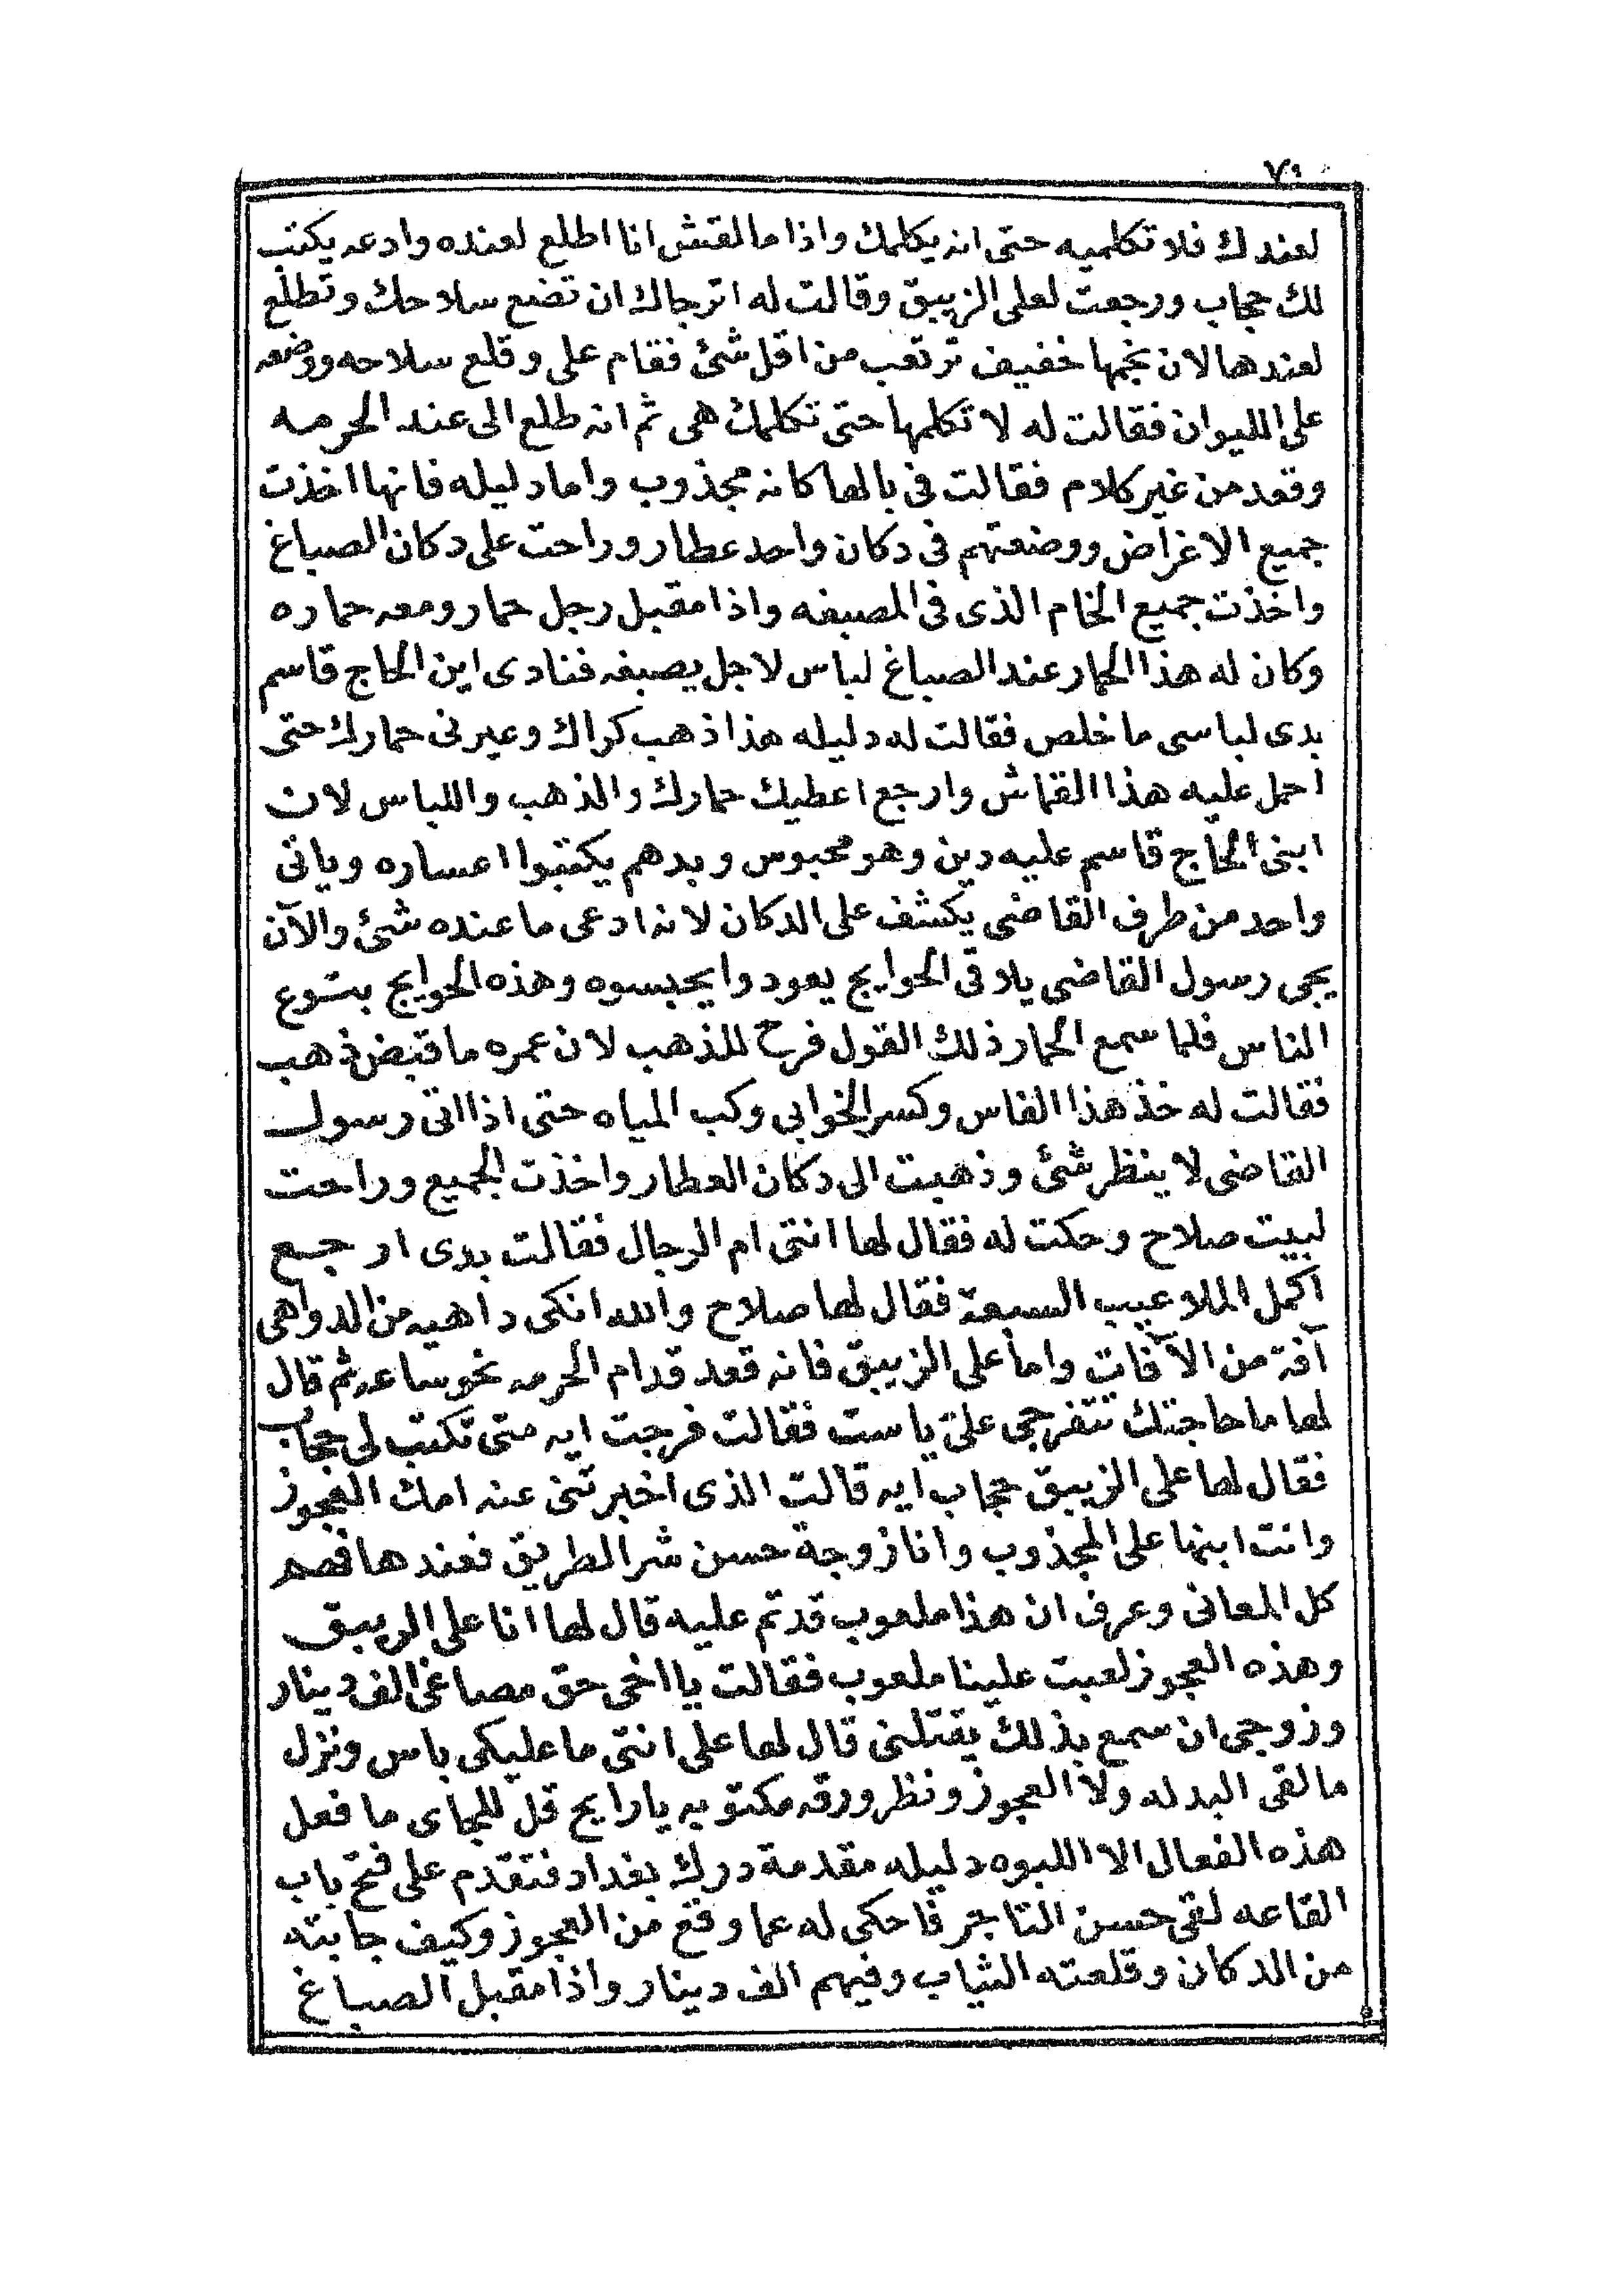 ٧٠
لعندك فلا تكلميه حتى انه يكلمك واذا ما لقتش انا اطلع لعنده وادعه يكتب
لك حجاب ورجعت لعلى الزيبق وقالت له اترجاك ان تضع سلاحك وتطلع
لعندها لان نجمها خفيف ترتعب من اقل شئ فقام على وقلع سلاحه ووضعه
على الليوان فقالت له لا تكلمها حتى تكلمك هى ثم انه طلع الى عند الحرمه
وقعد من غير كلام فقالت فى بالها كانه مجذوب واما دليله فانها اخذت
جميع الاغراض ووضعتهم فى دكان واحد عطار وراحت على دكان الصباغ
واخذت جميع الخام الذى فى المصبغه واذا مقبل رجل حمار ومعه حماره
وكان له هذا الحمار عند الصباغ لباس لاجل يصبغه فنادى اين الحاج قاسم
بدى لباسى ما خلص فقالت له دليله هذا ذهب كراك وعيرنى حمارك حتى
احمل عليه هذا القماش وارجع اعطيك حمارك والذهب واللباس لان
ابنى الحاج قاسم عليه دين وهو محبوس وبدهم يكتبوا اعساره وياتى
واحد من طرف القاضى يكشف على الدكان لانه ادعى ما عنده شئ والآن
يجى رسول القاضى يلاقى الحوايج يعودوا يحبسوه وهذه الحوايج بتوع
الناس فلما سمع الحمار ذلك القول فرح للذهب لان عمره ما قبض ذهب
فقالت له خذ هذا الفاس وكسر الخوابى وكب المياه حتى اذا اتى رسول
القاضى لا ينظر شئ وذهبت الى دكان العطار واخذت الجميع وراحت
لبيت صلاح وحكت له فقال لها انتى ام الرجال فقالت بدى ارجع
اكمل الملاعيب السبعة فقال لها صلاح والله انكى داهيه من الدواهى
آفة من الآفات واما على الزيبق فانه قعد قدام الحرمه نحو ساعه ثم قال
لها ما حاجتك تتفرجى علىّ ياست فقالت فرجت ايه متى تكتب لى حجاب
فقال لها على الزيبق حجاب ايه قالت الذى اخبرتنى عنه امك العجوز
وانت ابنها على المجذوب وانا زوجة حسن شر الطريق فعندها فهم
كل المعانى وعرف ان هذا ملعوب قد تم عليه قال لها انا على الزيبق
وهذه العجوز لعبت علينا ملعوب فقالت يا اخى حق مصاغى الف دينار
وزوجى ان سمع بذلك يقتلنى قال لها على انتى ما عليكى باس ونزل
ما لقى البدله ولا العجوز ونظر ورقه مكتوبه يا رايح قل للجاى ما فعل
هذه الفعال الا اللبوه دليله مقدمة درك بغداد فتقدم على فتح باب
القاعه لقى حسن التاجر فاحكى له عما وقع من العجوز وكيف جابته
من الدكان وقلعته الثياب وفيهم الف دينار واذا مقبل الصباغ